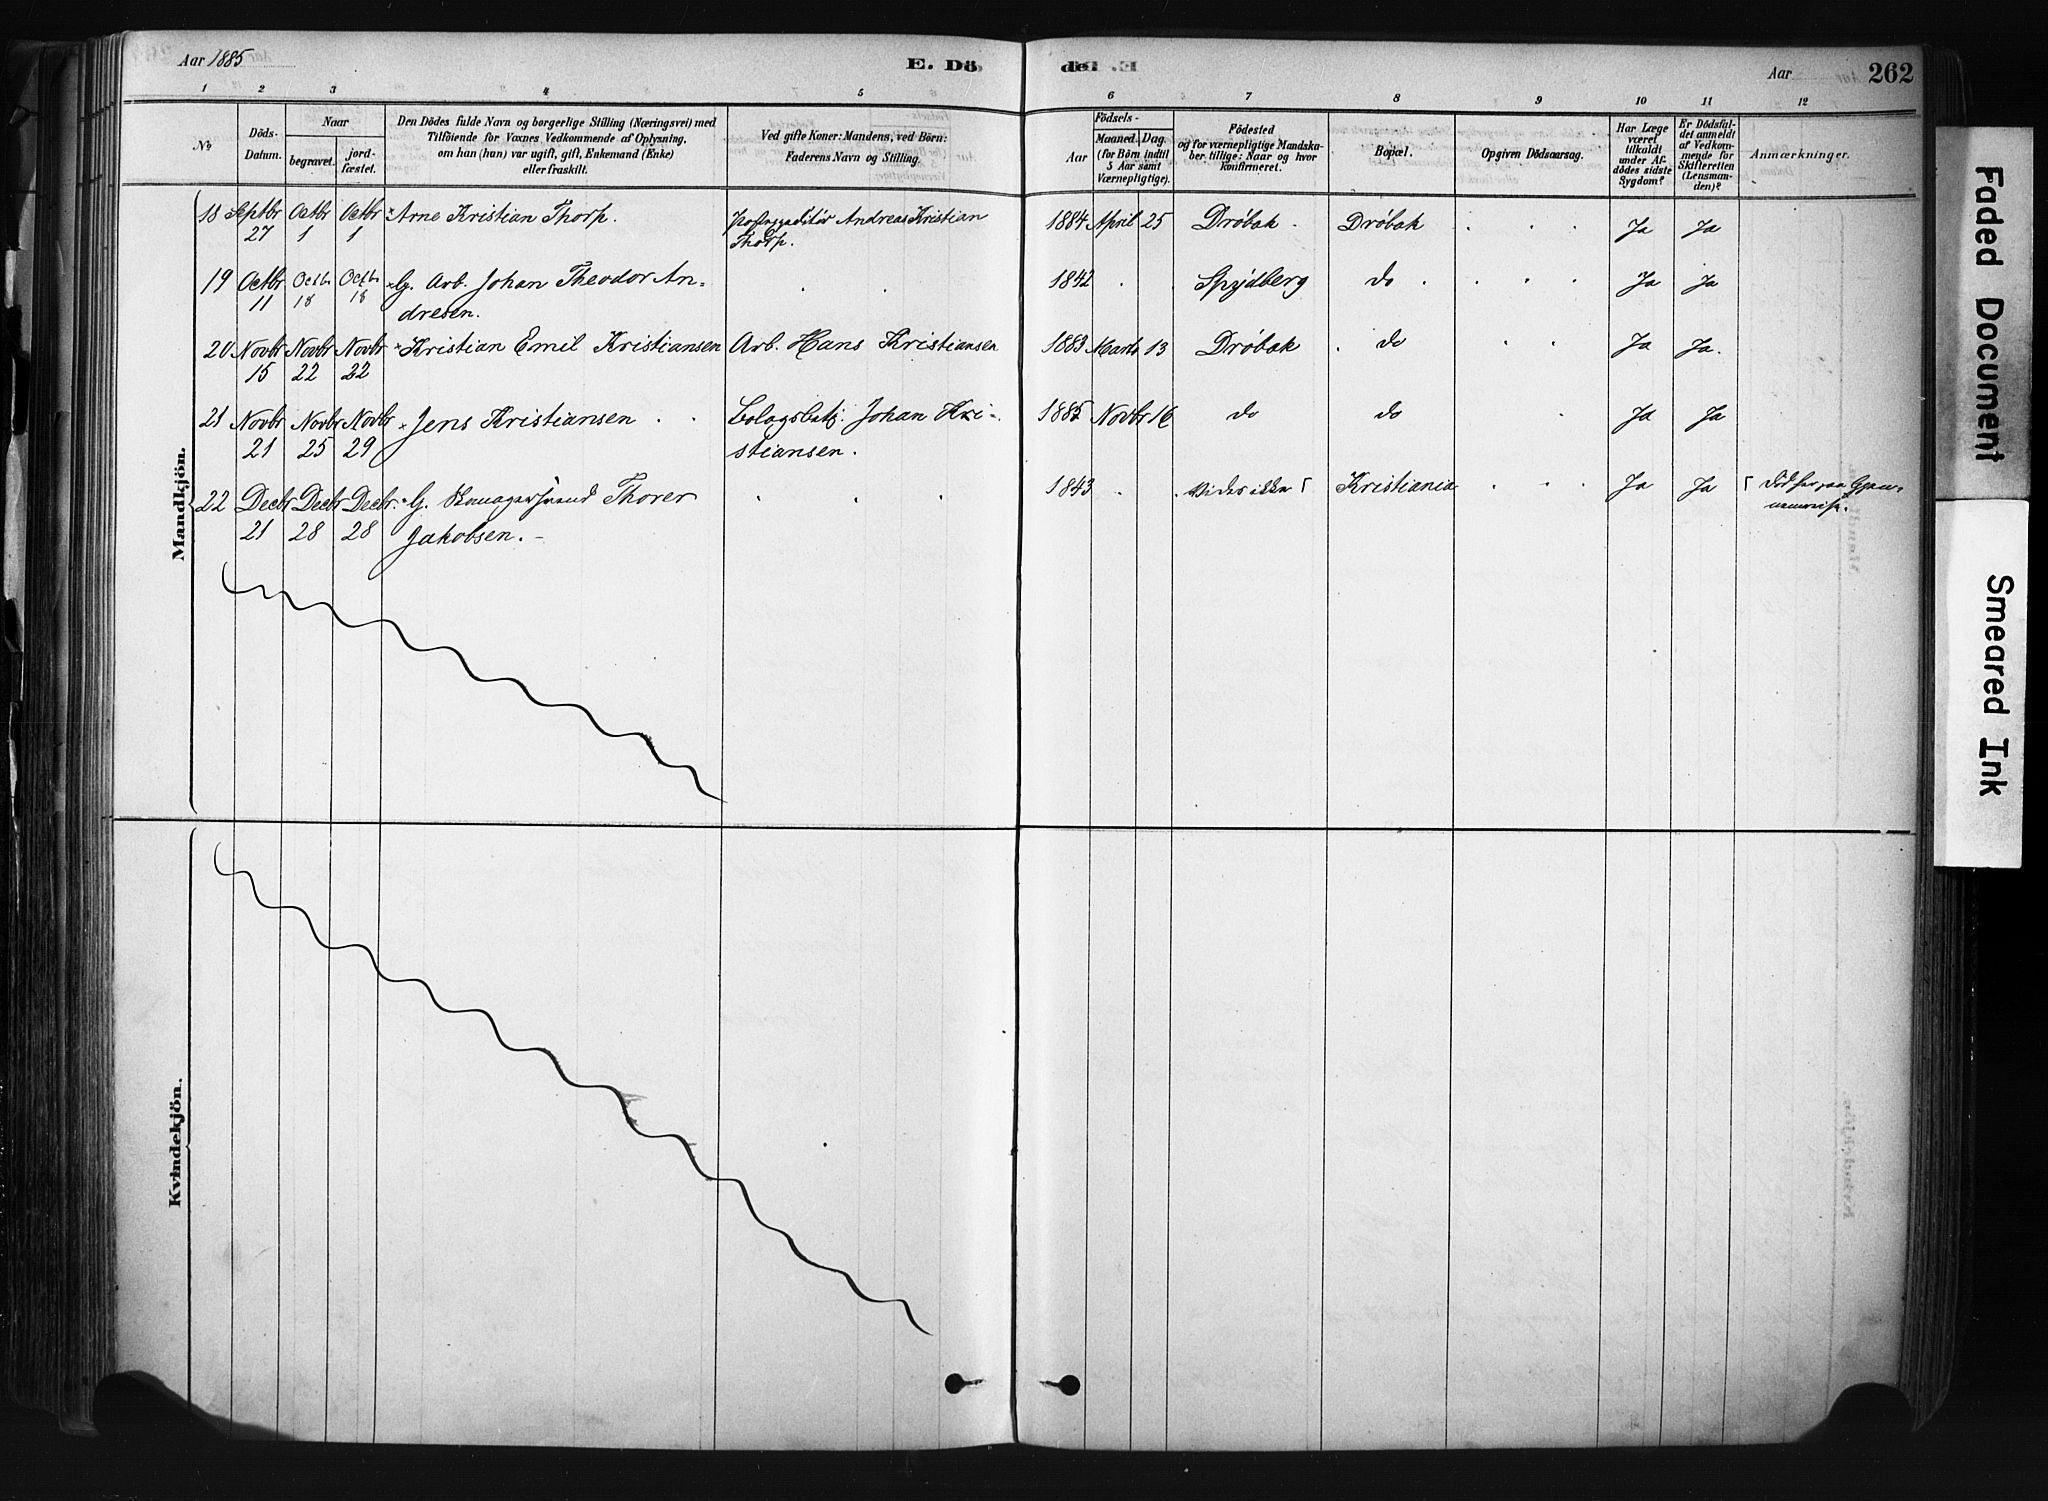 Aar 1885
E. Dö
de
Aar
262
1 2 3 4 5 6 7 8 9 10 11 12
No
Döds-
Datum.
Naar
begravet.
jord-
fæstet.
Den Dödes fulde Navn og borgerlige Stilling (Næringsvei) med
Tilföiende for Voxnes Vedkommende af Oplysning,
om han (hun) var ugift, gift, Enkemand (Enke)
eller fraskilt.
Ved gifte Koner: Mandens, ved Börn:
Faderens Navn og Stilling.
Födsels-
Aar
Maaned. Dag.
(for Börn indtil
5 Aar samt
Værnepligtige).
Födested
og for værnepligtige Mandska-
ber tillige: Naar og hvor
konfirmeret.
Bopæl.
Opgiven Dödsaarsag.
Har Læge
været
tilkaldt
under Af-
dödes sidste
Sygdom?
Er Dödsfal-
det anmeldt
af Vedkom-
mende for
Skifteretten
(Lensman-
den)?
Anmærkninger.
Mandkjön.
18 Septbr Octbr Octbr Arne Kristian Thorp. Andreas Kristian 1884 April 25 Drøbak Drøbak Ja Ja
27 1 1 Thorp.
19 Octbr Octbr Octbr G. Arb. Johan Theodor An- 1842 Spydberg do Ja Ja
11 18 18 dresen.
20 Novbr Novbr Novbr Kristian Emil Kristiansen Arb. Hans Kristiansen 1883 Marts 13 Drøbak do Ja Ja.
15 22 22
21 Novbr Novbr Novbr Jens Kristiansen Johan Kri- 1885 Novbr 16 do do Ja Ja
21 25 29 stiansen.
22 Decbr Decbr Decbr. G. Thorer 1843 Vides ikke Kristiania Ja Ja
21 28 28 Jakobsen.
Kvindekjön.
Faded Document
Smeared Ink